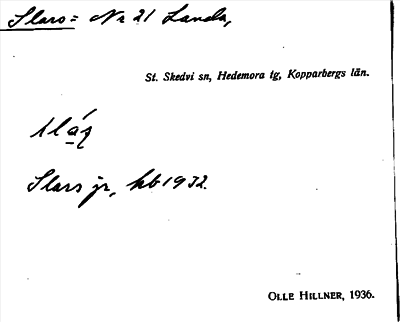 Slars = Nr 21 Landa,
St. Skedvi sn, Hedemora tg, Kopparbergs län.
Slars jr, hb 1932.
OLLE HILLNER, 1936.